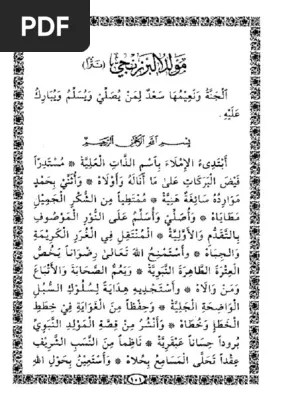 PDF
مَوْلِدُ الْبَرْزَنْجِي (نثرا)
اَلْجَنَّةُ وَنَعِيْمُهَا سَعْدٌ لِمَنْ يُصَلِّيْ وَيُسَلِّمُ وَيُبَارِكُ
عَلَيْهِ .
بِسْمِ اللهِ الرَّحْمٰنِ الرَّحِيْمِ
أَبْتَدِئُ الْإِمْلَاءَ بِاسْمِ الذَّاتِ الْعَلِيَّةِ * مُسْتَدِرًّا
فَيْضَ الْبَرَكَاتِ عَلَى مَا أَنَالَهُ وَأَوْلَاهُ * وَأُثَنِّيْ بِحَمْدٍ
مَوَارِدُهُ سَائِغَةٌ هَنِيَّةٌ * مُمْتَطِيًا مِنَ الشُّكْرِ الْجَمِيْلِ
مَطَايَاهُ * وَأُصَلِّيْ وَأُسَلِّمُ عَلَى النُّوْرِ الْمَوْصُوْفِ
بِالتَّقَدُّمِ وَالْأَوَّلِيَّةِ * الْمُنْتَقِلِ فِي الْغُرَرِ الْكَرِيْمَةِ
وَالْجِبَاهِ * وَأَسْتَمْنِحُ اللهَ تَعَالَى رِضْوَانًا يَخُصُّ
الْعِتْرَةَ الطَّاهِرَةَ النَّبَوِيَّةَ * وَيَعُمُّ الصَّحَابَةَ وَالْأَتْبَاعَ
وَمَنْ وَالَاهُ * وَأَسْتَجْدِيْهِ هِدَايَةً لِسُلُوْكِ السُّبُلِ
الْوَاضِحَةِ الْجَلِيَّةِ * وَحِفْظًا مِنَ الْغَوَايَةِ فِيْ خِطَطِ
الْخَطَإِ وَخُطَاهُ * وَأَنْشُرُ مِنْ قِصَّةِ الْمَوْلِدِ النَّبَوِيِّ
بُرُوْدًا حِسَانًا عَبْقَرِيَّةً * نَاظِمًا مِنَ النَّسَبِ الشَّرِيْفِ
عِقْدًا تَحَلَّى الْمَسَامِعُ بِحُلَاهُ * وَأَسْتَعِيْنُ بِحَوْلِ اللهِ